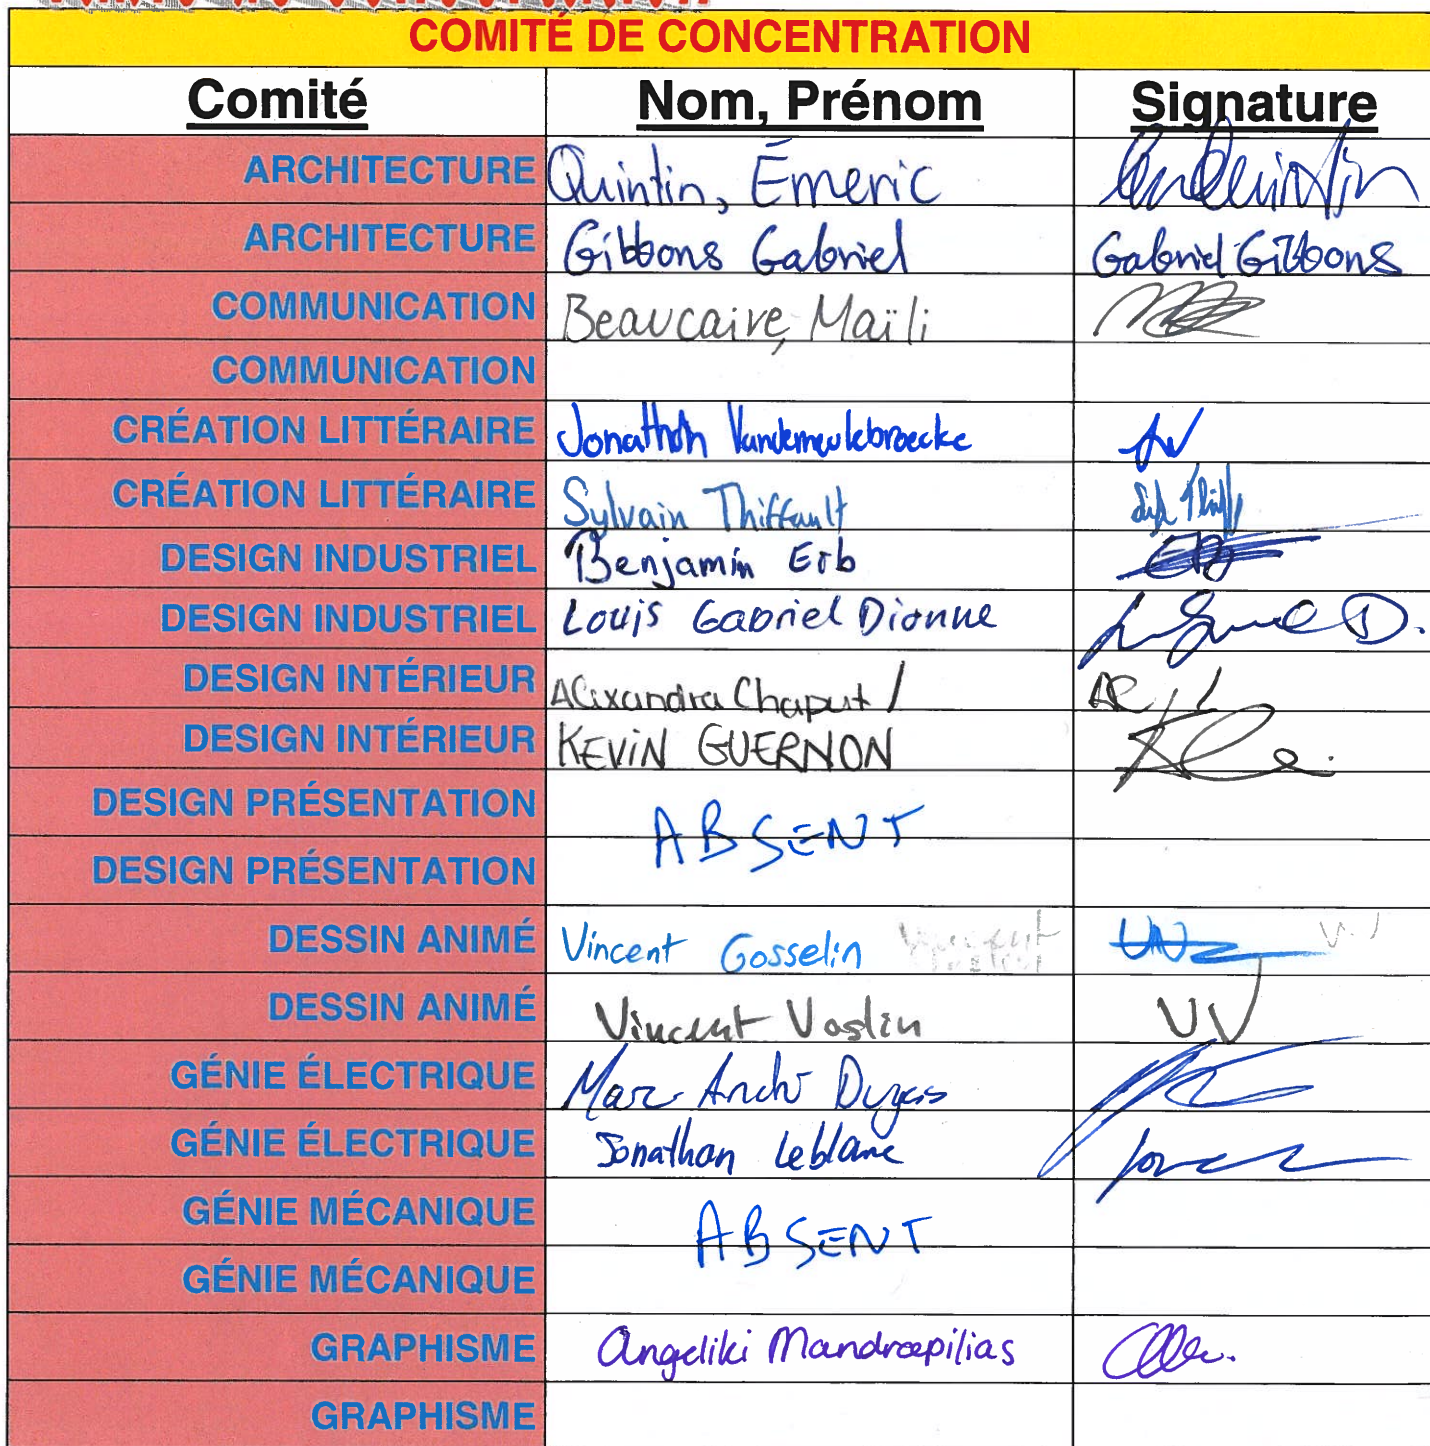 COMITÉ DE CONCENTRATION
Comité Nom, Prénom Signature
ARCHITECTURE Quintin, Émeric
ARCHITECTURE Gibbons Gabriel Gabriel Gibbons
COMMUNICATION Beaucaire, Maïli
COMMUNICATION
CRÉATION LITTÉRAIRE Jonathan Vandermeulebroecke JV
CRÉATION LITTÉRAIRE Sylvain Thiffault
DESIGN INDUSTRIEL Benjamin Erb
DESIGN INDUSTRIEL Louis Gabriel Dionne
DESIGN INTÉRIEUR Alexandra Chaput / AC
DESIGN INTÉRIEUR KEVIN GUERNON
DESIGN PRÉSENTATION ABSENT
DESIGN PRÉSENTATION
DESSIN ANIMÉ Vincent Gosselin
DESSIN ANIMÉ Vincent Voslin VV
GÉNIE ÉLECTRIQUE Marc-André
GÉNIE ÉLECTRIQUE Jonathan Leblanc
GÉNIE MÉCANIQUE ABSENT
GÉNIE MÉCANIQUE
GRAPHISME Angeliki Mandraepilias
GRAPHISME